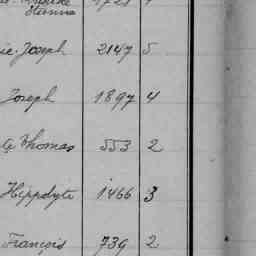 Hanna 1721 1
ie. Joseph 2147 5
Joseph 1897 4
Thomas 553 2
Hippolyte 1466 3
François 739 2